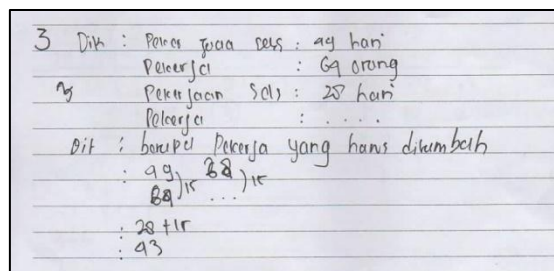 3 Dik : Pekerjaan sels : 49 hari
Pekerja : 64 orang
Pekerjaan Sels : 28 hari
Pekerja : ....
Dit : berapa Pekerja yang harus ditambah
: 49 ) 15 28 ) 15
64 ...
: 28 + 15
: 43